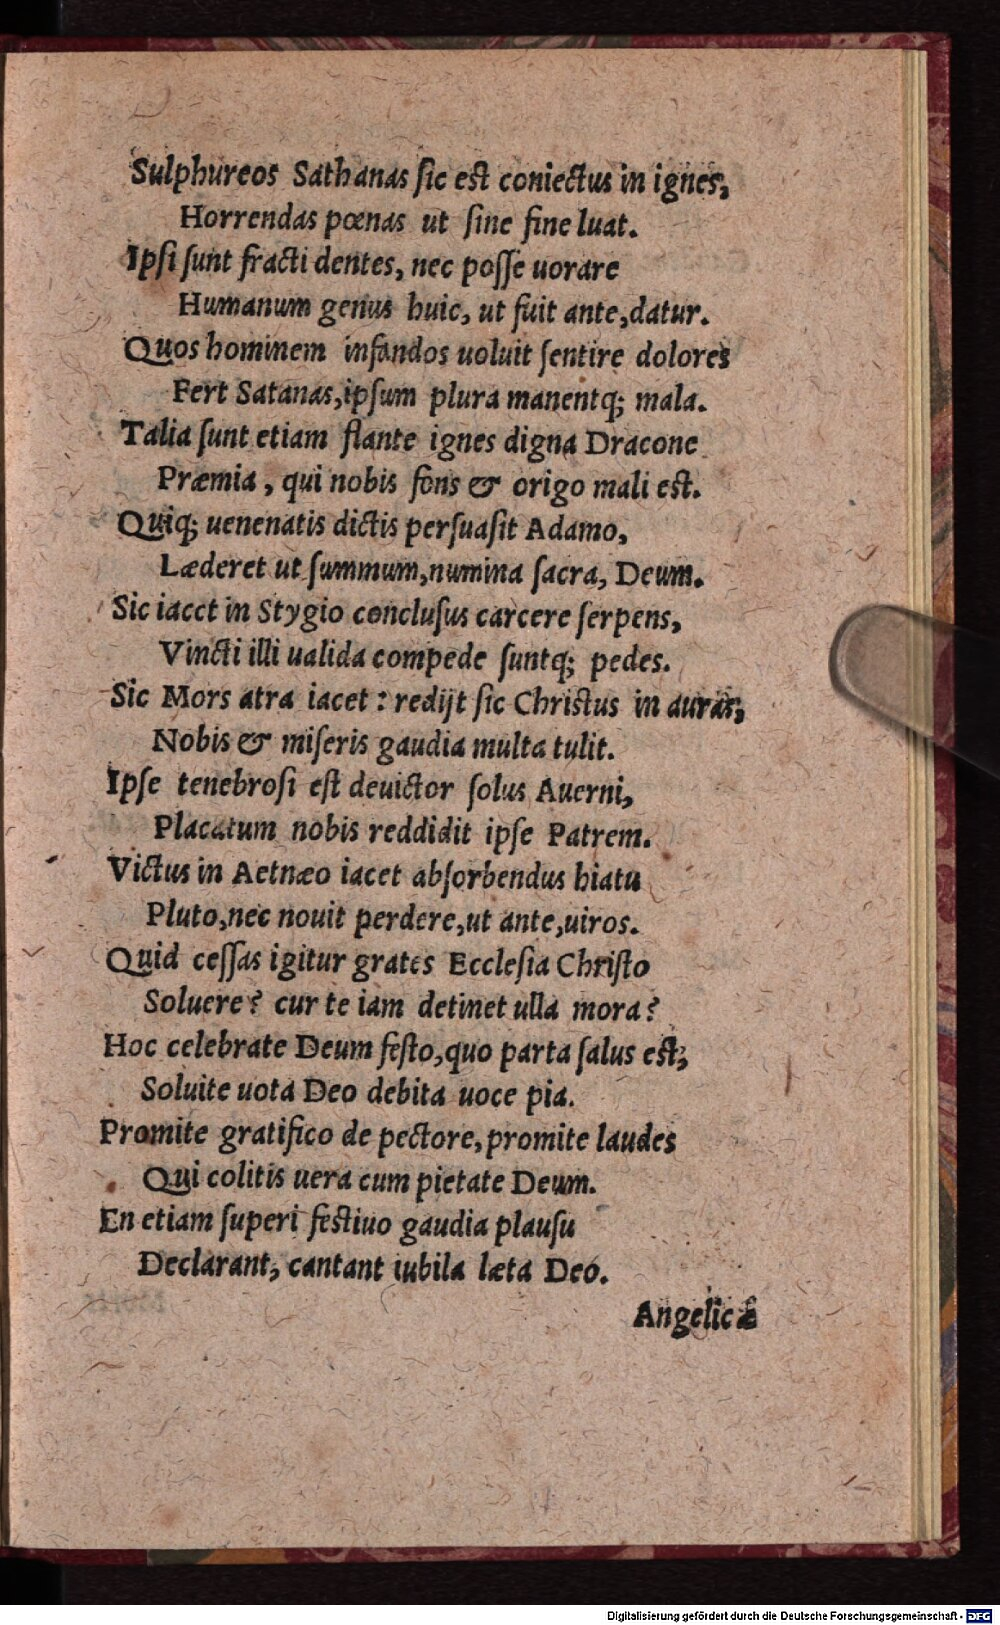 Sulphureos Sathanas ſic eſt coniectus in ignes,
Horrendas pœnas ut ſine fine luat.
Ipſi ſunt fracti dentes, nec poſſe uorare
Humanum genus huic, ut fuit ante, datur.
Quos hominem infandos uoluit ſentire dolores
Fert Satanas, ipſum plura manentq; mala.
Talia ſunt etiam flante ignes digna Dracone
Præmia, qui nobis fons & origo mali eſt.
Quiq; uenenatis dictis perſuaſit Adamo,
Læderet ut ſummum, numina ſacra, Deum.
Sic iacet in Stygio concluſus carcere ſerpens,
Vincti illi ualida compede ſuntq; pedes.
Sic Mors atra iacet: redijt ſic Chriſtus in auras,
Nobis & miſeris gaudia multa tulit.
Ipſe tenebroſi eſt deuictor ſolus Auerni,
Placatum nobis reddidit ipſe Patrem.
Victus in Aetnæo iacet abſorbendus hiatu
Pluto, nec nouit perdere, ut ante, uiros.
Quid ceſſas igitur grates Eccleſia Chriſto
Soluere? cur te iam detinet ulla mora?
Hoc celebrate Deum feſto, quo parta ſalus eſt,
Soluite uota Deo debita uoce pia.
Promite gratifico de pectore, promite laudes
Qui colitis uera cum pietate Deum.
En etiam ſuperi feſtiuo gaudia plauſu
Declarant, cantant iubila læta Deo.
Angelicæ
Digitalisierung gefördert durch die Deutsche Forschungsgemeinschaft - DFG